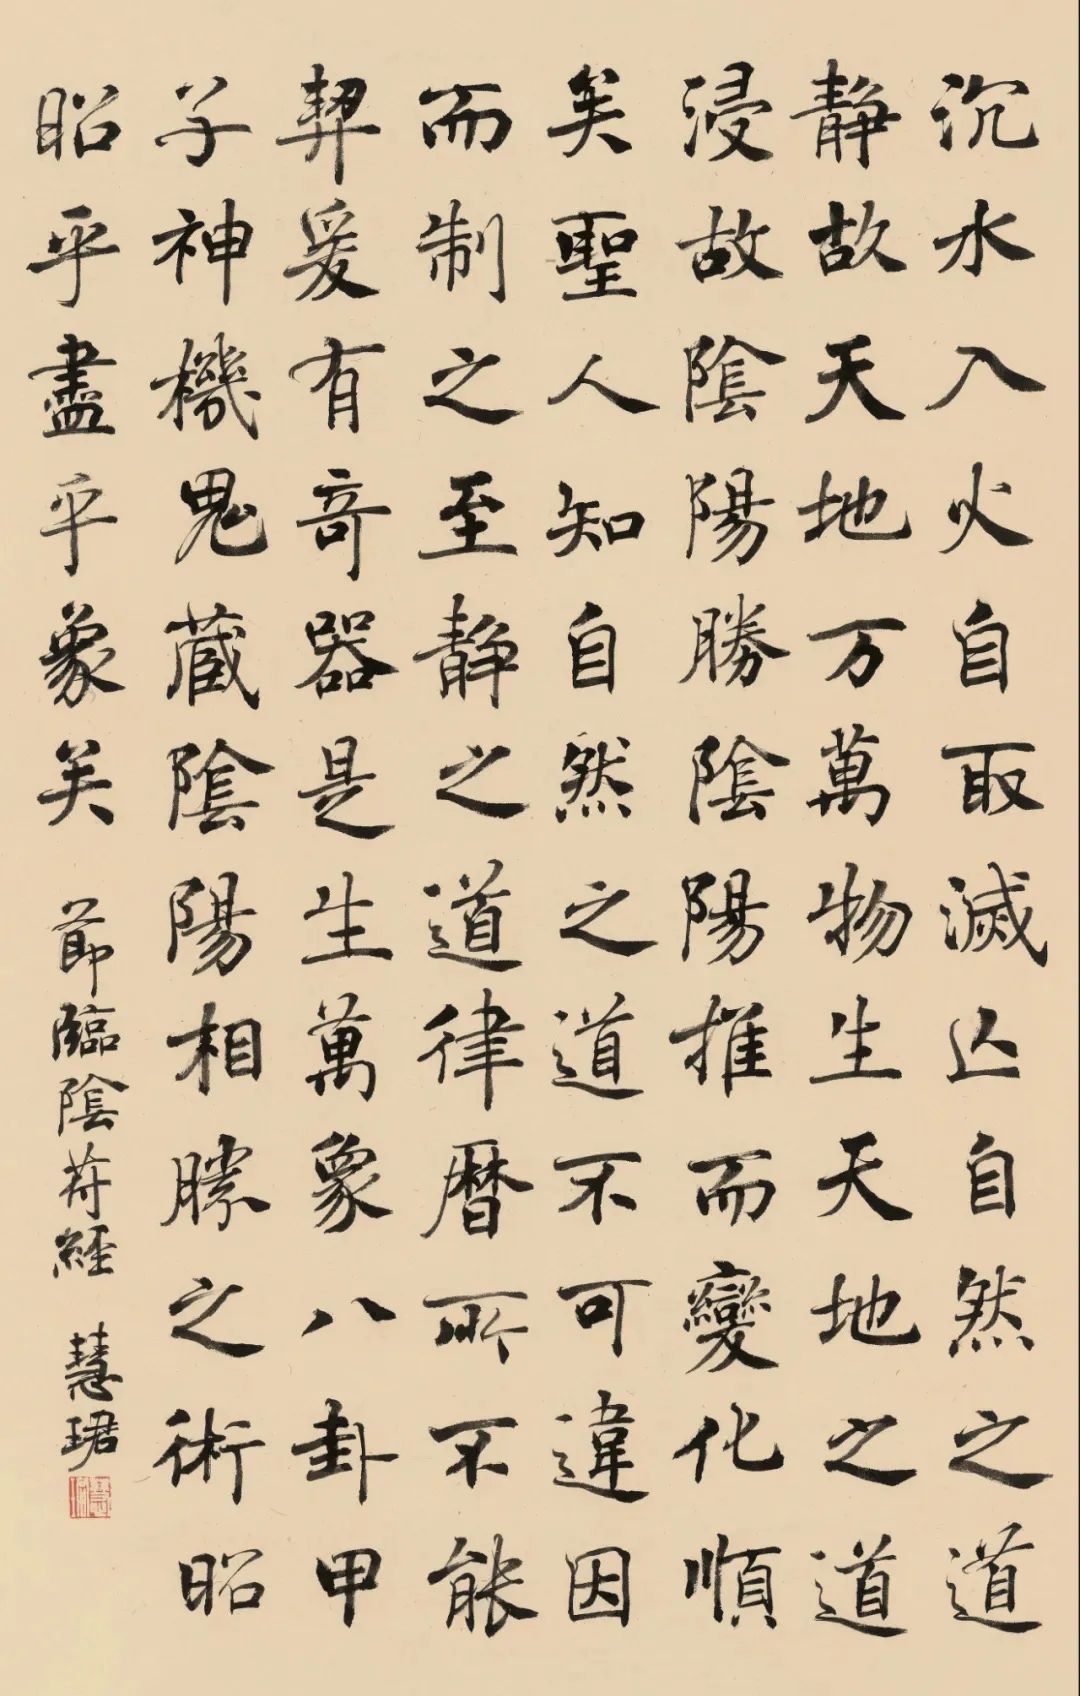 沉水入火自取滅亡自然之道
静故天地万萬物生天地之道
浸故陰陽勝陰陽推而變化順
矣聖人知自然之道不可違因
而制之至静之道律暦所不能
契爰有奇器是生萬象八卦甲
子神機鬼蔵陰陽相勝之術昭
昭乎盡乎象矣 節臨陰符經 慧珺